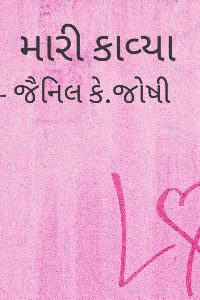 મારી કાવ્યા
- જૈનિલ કે.જોષી